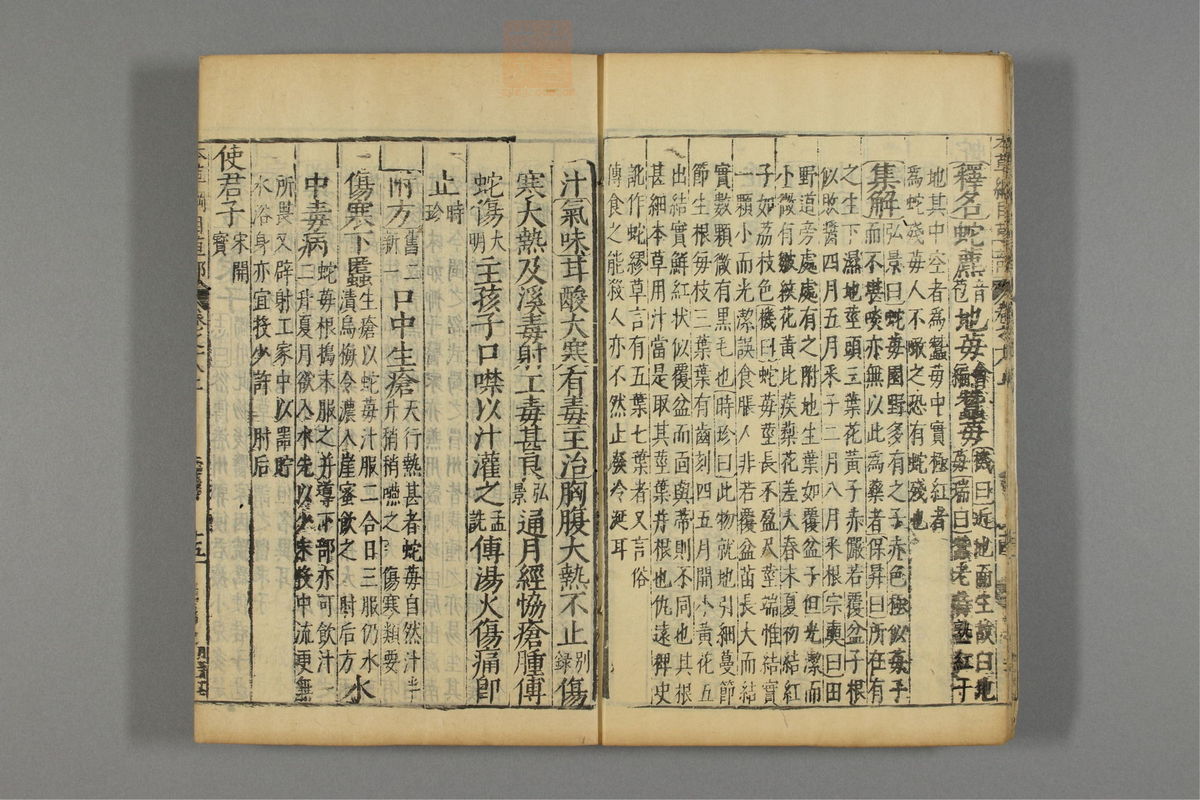 釋名蛇藨音苞地莓會編蠶莓機曰近地而生故曰地
莓瑞曰蠶老時熟紅于
地其中空者為蠶莓中實極紅者
為蛇殘莓人不噉之恐有蛇殘也
集解弘景曰蛇莓園野多有之子赤色極似莓子
而不堪啖亦無以此為藥者保昇曰所在有
之生下濕地莖頭三葉花黃子赤儼若覆盆子根
似敗醬四月五月采子二月八月采根宗奭曰田
野道旁處處有之附地生葉如覆盆子但光潔而
小微有皺紋花黃比蒺藜花差大春末夏初結紅
子如荔枝色機曰蛇莓莖長不盈尺莖端惟結實
一顆小而光潔誤食脹人非若覆盆苗長大而結
實數顆微有黑毛也時珍曰此物就地引細蔓節
節生根每枝三葉葉有齒刻四五月開小黃花五
出結實鮮紅狀似覆盆而面與蒂則不同也其根
甚細本草用汁當是取其莖葉并根也仇遠稗史
訛作蛇繆草言有五葉七葉者又言俗
傳食之能殺人亦不然止發冷涎耳
汁氣味甘酸大寒有毒主治胸腹大熱不止別錄傷
寒大熱及溪毒射工毒甚良弘景通月經協瘡腫傅
蛇傷大明主孩子口噤以汁灌之孟詵傅湯火傷痛即
止時珍
附方舊二新一口中生瘡天行熱甚者蛇莓自然汁半
升稍稍嚥之傷寒類要
傷寒下䘌生瘡以蛇莓汁服二合日三服仍水
漬烏梅令濃入崖蜜飲之肘后方水
中毒病蛇莓根搗末服之并導下部亦可飲汁一
二升夏月欲入水先以少末投中流更無
所畏又辟射工家中以器貯
水浴身亦宜投少許肘后
使君子宋開寶